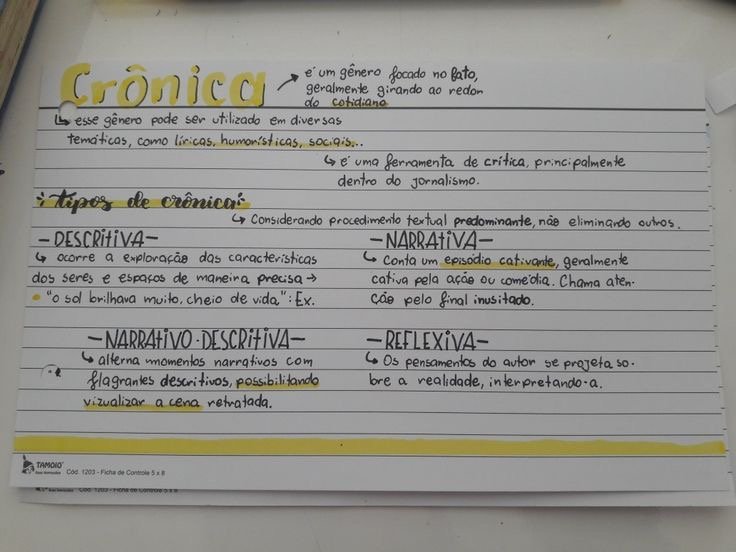 Crônica
→ é um gênero focado no fato,
geralmente girando ao redor
do cotidiano
↳ esse gênero pode ser utilizado em diversas
temáticas, como líricas, humorísticas, sociais...
↳ é uma ferramenta de crítica, principalmente
dentro do jornalismo.
tipos de crônica
↳ Considerando procedimento textual predominante, não eliminando outros.
- DESCRITIVA -
↳ ocorre a exploração das características
dos seres e espaços de maneira precisa →
• "o sol brilhava muito, cheio de vida.": Ex.
- NARRATIVA -
↳ Conta um episódio cativante, geralmente
cativa pela ação ou comédia. Chama aten-
ção pelo final inusitado.
- NARRATIVO-DESCRITIVA -
↳ alterna momentos narrativos com
flagrantes descritivos, possibilitando
vizualizar a cena retratada.
- REFLEXIVA -
↳ Os pensamentos do autor se projeta so-
bre a realidade, interpretando-a.
TAMOIO
Cód. 1203 - Ficha de Controle 5 x 8
Cód. 1203 - Ficha de Controle 5 x 8